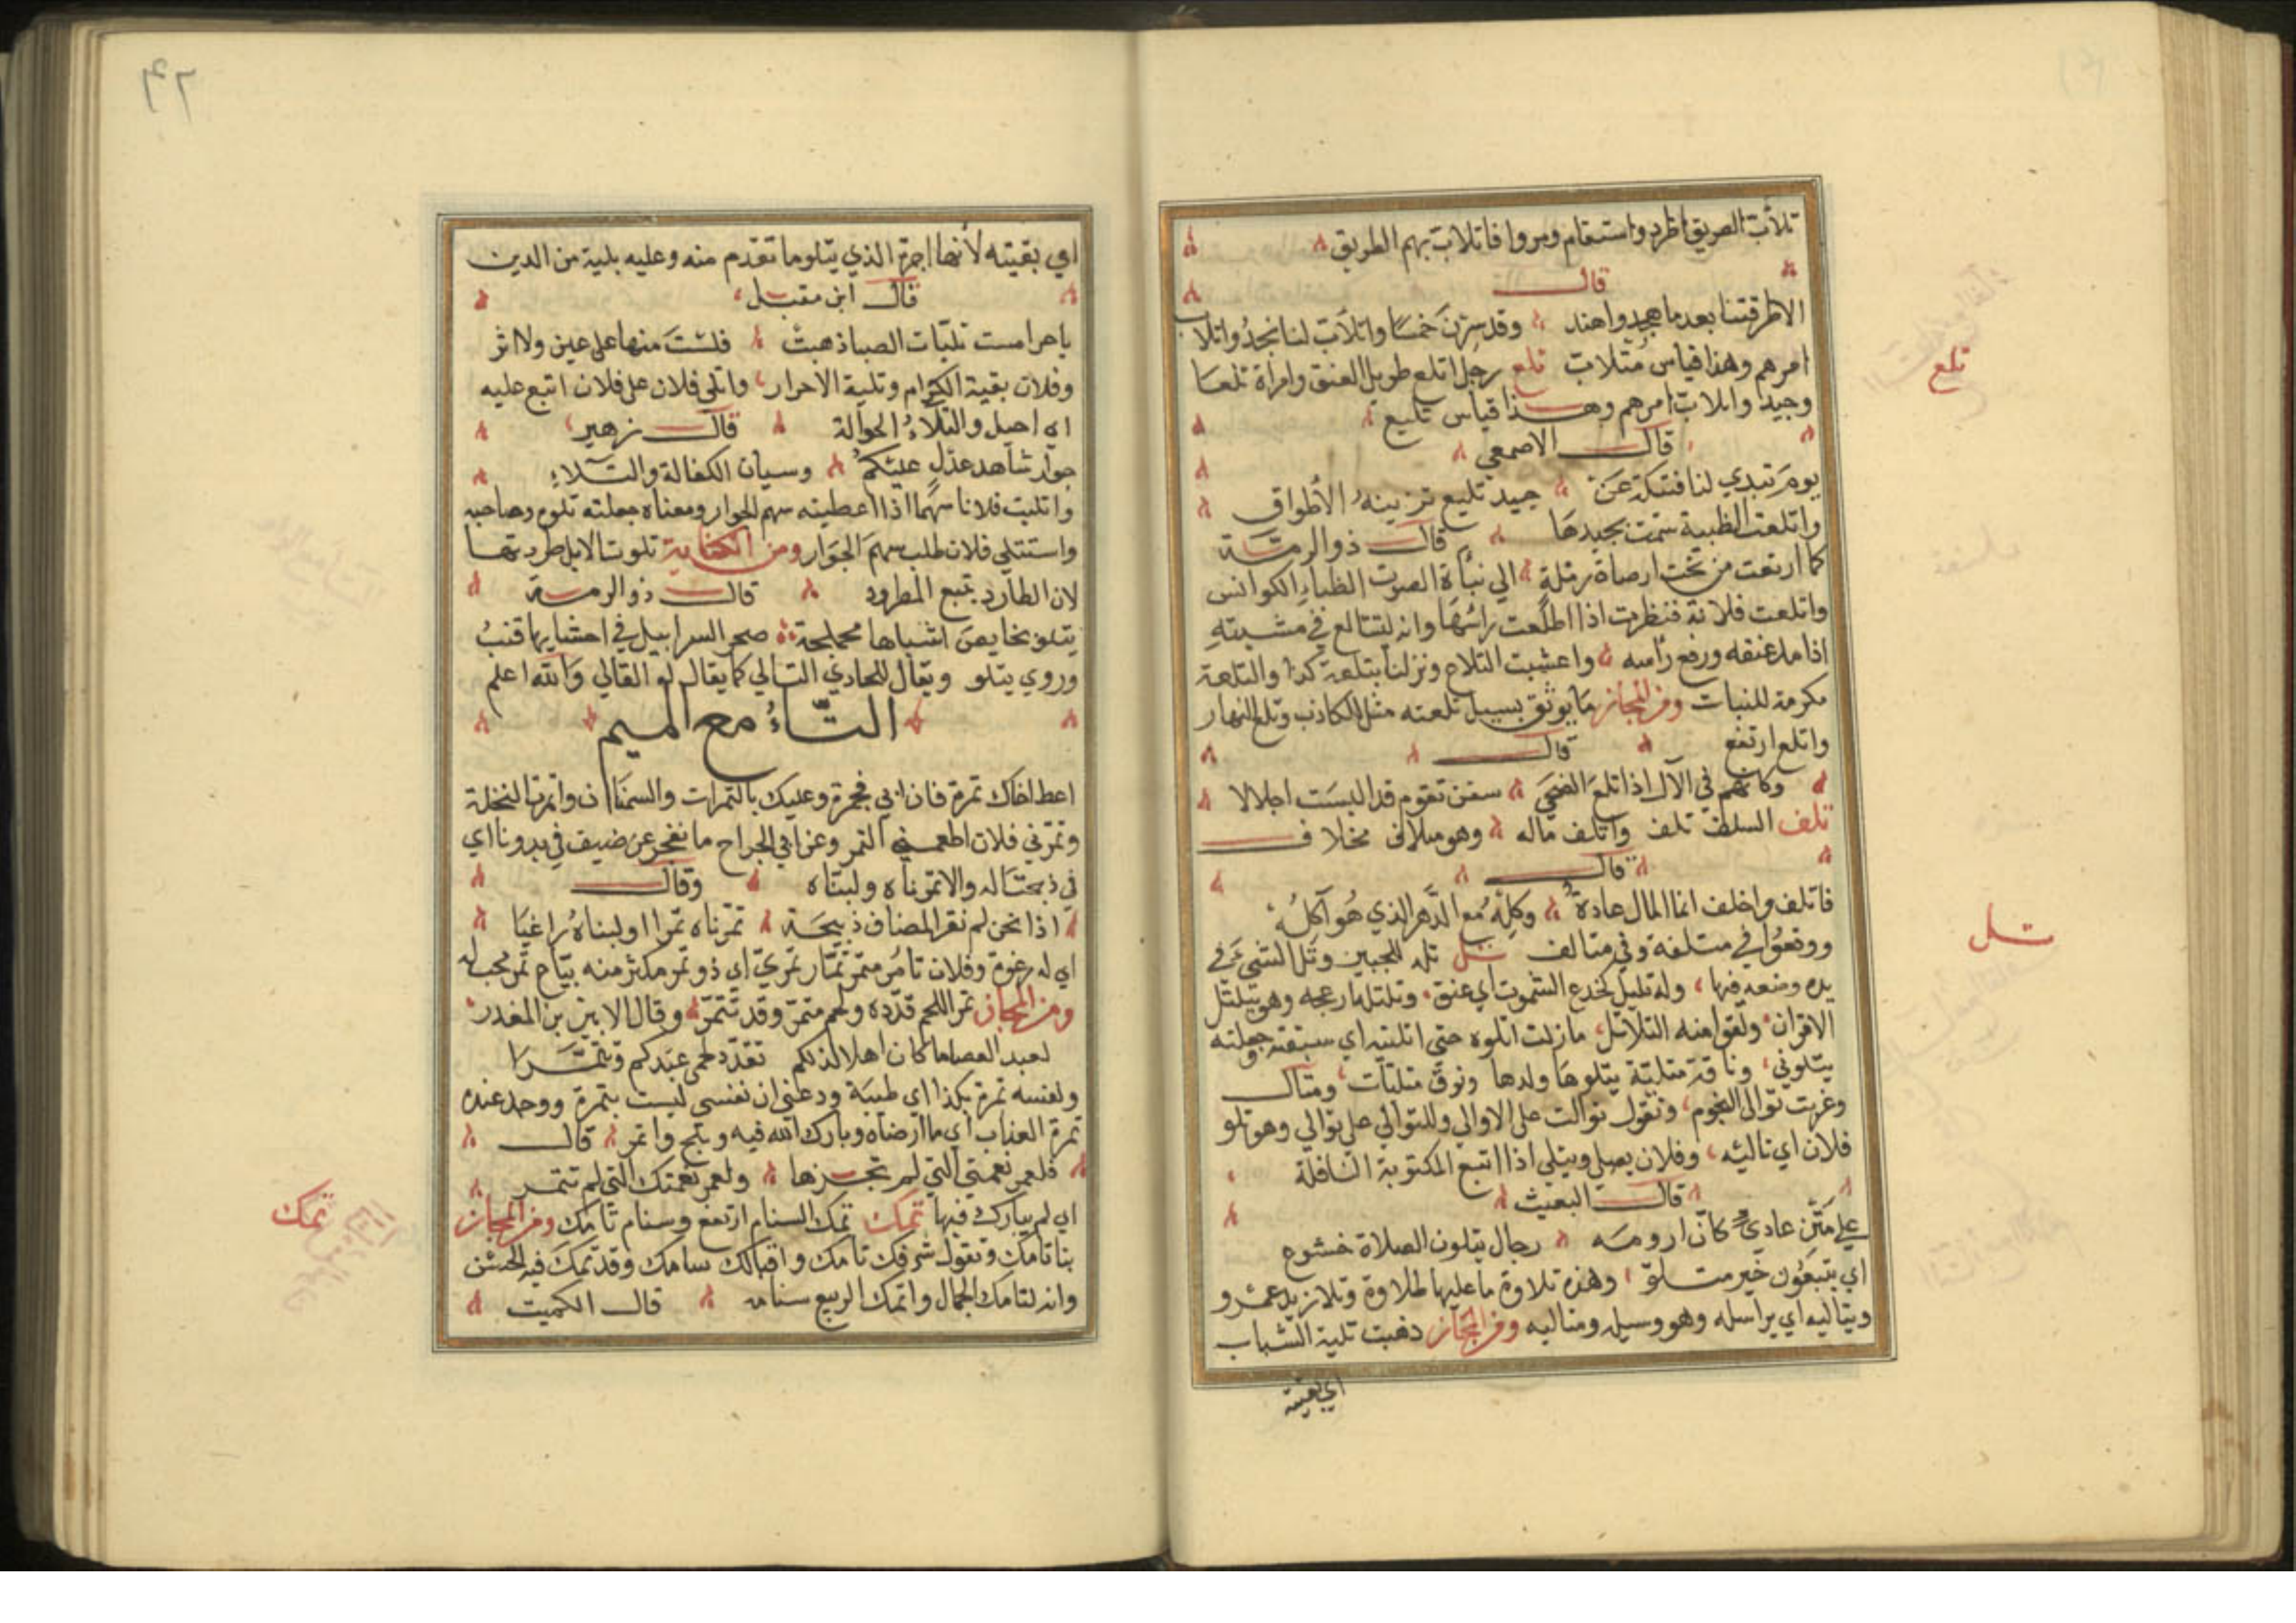 تلأب الطريق اطرد واستقام ومروا فاتلاب بهم الطريق
قال
الاطرقتنا بعد ما هجدوا هند وقد سرن خمسا واتلأب لنا نجد واتلاب
امرهم وهذا قياس متلاب تلع رجل اتلع طويل العنق وامراة تلعا
وجيد واتلاب امرهم وهذا قياس تليع
قال الاصمعي
يوم تبدي لنا قتيلة عن جيد تليع تزينه الأطواق
واتلعت الظبية سمت بجيدها قال ذو الرمة
كما اتلعت من تحت ارطاة رملة الي نبأة الصوت الظباء الكوانس
واتلعت فلانة فنظرت اذا اطلعت رأسها وانه ليتتالع في مشيته
اذا مد عنقه ورفع رأسه واعشبت التلاع ونزلنا بتلعة كذا والتلعة
مكرمة للنبات ومن المجاز ما يوثق بسيل تلعته مثل للكاذب وتلع النهار
واتلع ارتفع قال
وكانهم في الآل اذا تلع الضحى سفن تعوم قد البست اجلالا
تلف السلف تلف واتلف ماله وهو متلاف مخلاف
قال
فاتلف واخلف انما المال عادة وكله مع الدهر الذي هو آكله
ووقعوا في متلفة وفي متالف تلل تله للجبين وتل الشئ في
يده وضعه فيها وله تليل كجذع السحوق اي عنق وتلتله ازعجه وهو يتلتل
الاقران ولقوا منه التلاتل مازلت اتلوه حتى اتليته اي سبقته وجعلته
يتلوني وناقة متلية يتلوها ولدها ونوق متليات ومتال
وغربت توالى النجوم وتقول توالت على الاوالي وللتوالي على توالي وهو تلو
فلان اي تاليه وفلان يصلي ويتلي اذا اتبع المكتوبة النافلة
قال البعيث
علي متن عادي كان ارومه رجال يتلون الصلاة خشوع
اي يتبعون خير متلو وهذه تلاوة ما عليها طلاوة وتلا زيد عمرو
ويتاليه اي يراسله وهو رسيله ومتاليه ومن المجاز ذهبت تلية الشباب
اي بقيته
تلع
تلل
٤٢
اي بقيته لأنها اخرة الذي يتلو ما تقدم منه وعليه بلية من الدين
قال ابن مقبل
يا حر امست تليات الصبا ذهبت فلست منها على عين ولا اثر
وفلان بقية الكرام وتلية الاحرار واتلى فلان على فلان اتبع عليه
اي احيل والتلاء الحوالة قال زهير
جوار شاهد عدل عليكم وسيان الكفالة والتلاء
واتليت فلانا سهما اذا اعطيته سهم الجوار ومعناه جعلته تلوه وصاحبه
واستتلي فلان طلب سهم الجوار ومن الكناية تلوت الابل طردتها
لان الطارد يتبع المطرود قال ذو الرمة
يتلو نحايص اشباها محملجة صحر السرابيل في احشايها قبب
وروي يتلو ويقال للحادي التالي كما يقال له القالي والله اعلم
التاء مع الميم
اعط اخاك تمرة فان ابي فجمرة وعليك بالتمرات والسمنان واتمرت النخلة
وتمرني فلان اطعمني التمر وعن ابي الجراح ما نفخر عن ضيف في بدونا اي
في ذبحنا له والا تمرناه ولبناه وقال
اذا نحن لم نقر المضاف ذبيحة تمرناه تمرا او لبناه راغيا
اي له رغوة وفلان تامر متمر تمار تمري اي ذو تمر مكثر منه بياع تمر محب له
ومن المجاز تمر اللحم قدده ولحم متمر وقد تتمر وقال الابيرد بن المعذر
لعبد العصا ما كان اهلا لذلكم تقدد لحمي عندكم وتتمرا
ونفسه تمرة بكذا اي طيبة ودعني ان نفسي ليست بتمرة ووجد عنده
تمرة العذاب اي ما ارضاه وبارك الله فيه وبلح واتمر قال
فلعمر نعمتي التي لم تجزها ولعمر نعمتك التي لم تتمر
اي لم يبارك فيها تمك تمك السنام ارتفع وسنام تامك ومن المجاز
بنا تامك وتقول شرفك تامك واقبالك سامك وقد تمك فيه الحسن
وانه لتامك الجمال واتمك الربيع سنامه قال الكميت
تمك